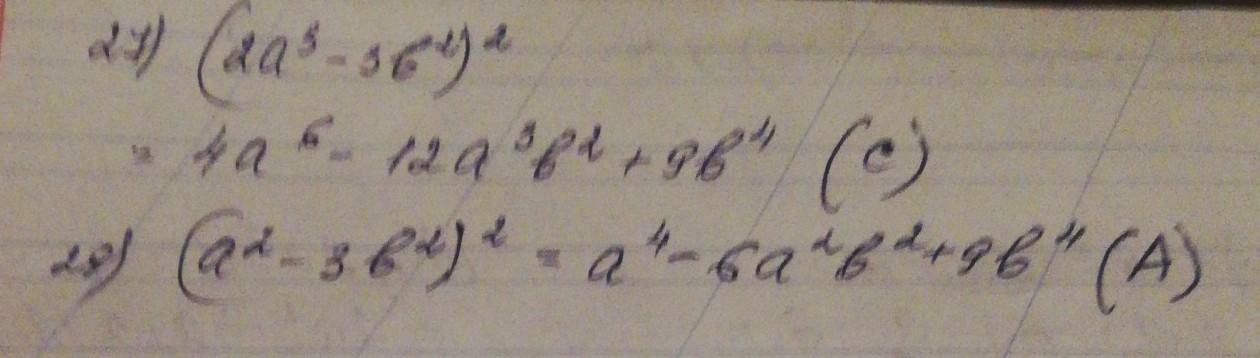 27) (2a³ - 3b²)²
= 4a⁶ - 12a³b² + 9b⁴ (C)
28) (a² - 3b²)² = a⁴ - 6a²b² + 9b⁴ (A)